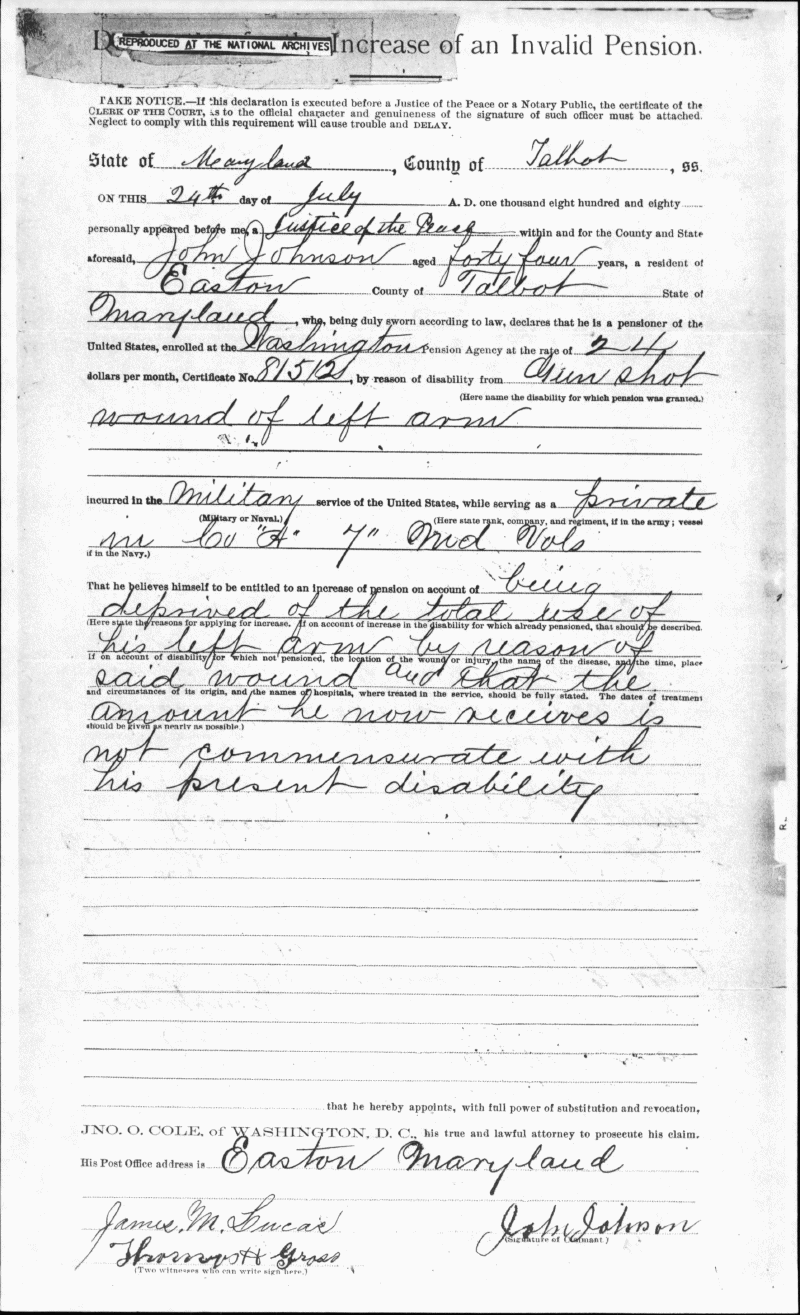 REPRODUCED AT THE NATIONAL ARCHIVES
Increase of an Invalid Pension.
TAKE NOTICE.—If this declaration is executed before a Justice of the Peace or a Notary Public, the certificate of the
CLERK OF THE COURT, as to the official character and genuineness of the signature of such officer must be attached.
Neglect to comply with this requirement will cause trouble and DELAY.
State of Maryland, County of Talbot, ss.
ON THIS 24th day of July A. D. one thousand eight hundred and eighty
personally appeared before me, a Justice of the Peace within and for the County and State
aforesaid, John Johnson aged forty four years, a resident of
Easton County of Talbot State of
Maryland, who, being duly sworn according to law, declares that he is a pensioner of the
United States, enrolled at the Washington Pension Agency at the rate of 24
dollars per month, Certificate No. 81512, by reason of disability from Gun shot
(Here name the disability for which pension was granted.)
wound of left arm
incurred in the Military service of the United States, while serving as a private
(Military or Naval.) (Here state rank, company, and regiment, if in the army; vessel
in Co "A" 7" Md Vols
if in the Navy.)
That he believes himself to be entitled to an increase of pension on account of being
deprived of the total use of
(Here state the reasons for applying for increase. If on account of increase in the disability for which already pensioned, that should be described.
his left arm by reason of
If on account of disability for which not pensioned, the location of the wound or injury, the name of the disease, and the time, place
said wound and that the
and circumstances of its origin, and the names of hospitals, where treated in the service, should be fully stated. The dates of treatment
amount he now receives is
should be given as nearly as possible.)
not commensurate with
his present disability
that he hereby appoints, with full power of substitution and revocation,
JNO. O. COLE, of WASHINGTON, D. C., his true and lawful attorney to prosecute his claim.
His Post Office address is Easton Maryland
James. M. Lucas John Johnson
(Signature of Claimant.)
Thomas H Gross
(Two witnesses who can write sign here.)